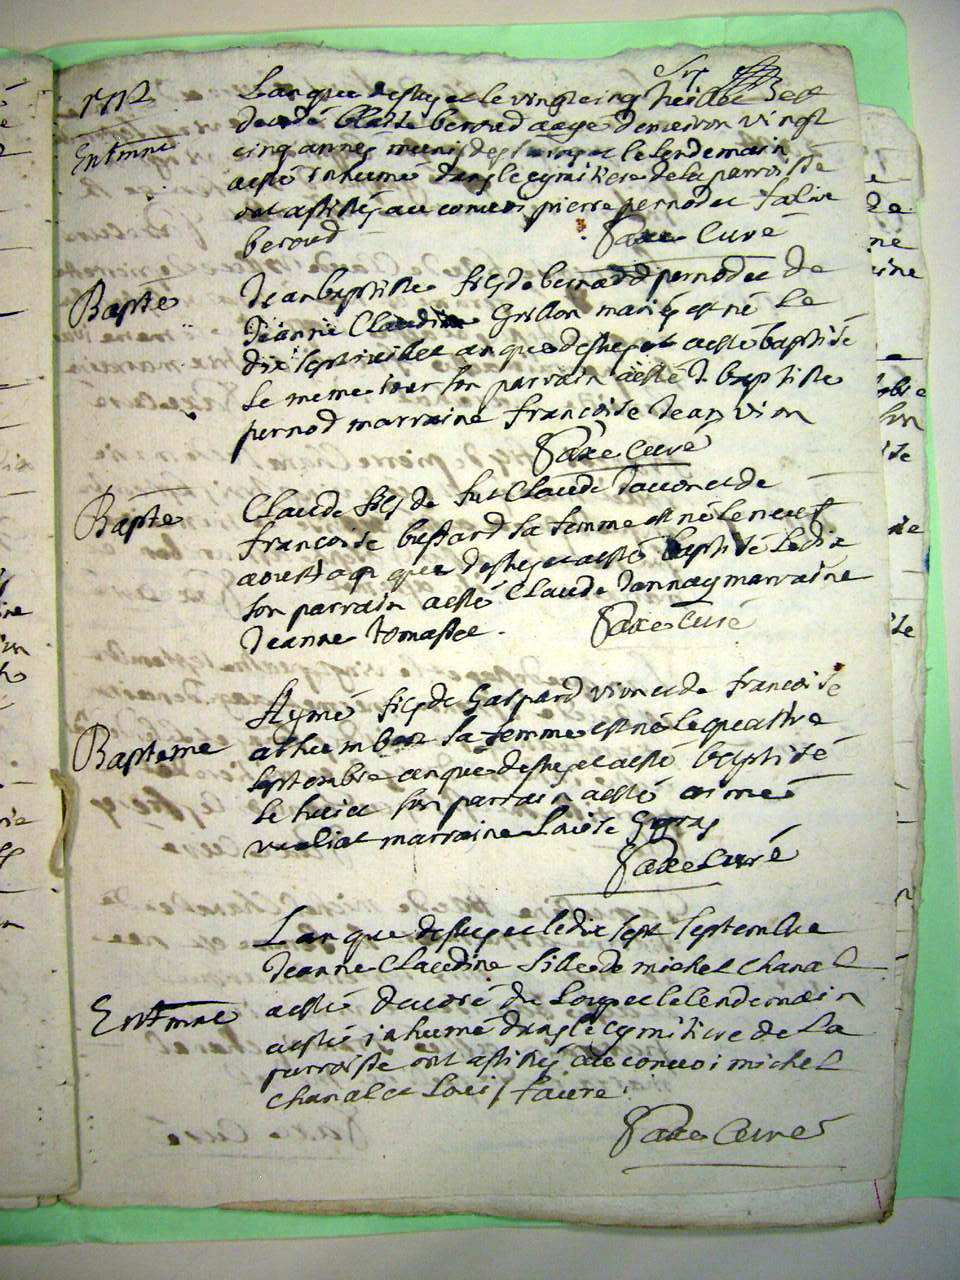 1712
Lan que dessus et le vingt cinq Juillet est
decedé beroud aagé denviron vingt
Entmnt
cinq années munis des et le lendemain
a esté inhumé dans le cymitiere de la parroisse
ont assistés au convoi pierre pernod et
beroud
Saxe Curé
Bapte
Jean baptiste fils de bernard pernod et de
Jeanne Claudine Grillon mariés est né le
dix sept iuillet an que dessus et a esté baptisé
le meme iour son parrain a esté J baptiste
pernod marraine francoise Jean vion
Saxe Curé
Bapte
Claude fils de fut Claude et de
francoise bessard sa femme est né le neuf
aoust an que dessus et a esté baptisé le dix
son parrain a esté Claude marraine
Jeanne
Saxe Curé
Aymé fils de Gaspard vion et de francoise
Bapteme
sa femme est né le quattre
septembre an que dessus et a esté baptisé
le huict son parrain a esté aimé
vuliat marraine Louise
Saxe Curé
Lan que dessus et le dix sept septembre
Jeanne Claudine fille de michel Chanal
Entmnt
a esté devoré du loup et le lendemain
a esté inhumé dans le cymitiere de la
parroisse ont assistés au convoi michel
Chanal et Louis faure
Saxe Curé